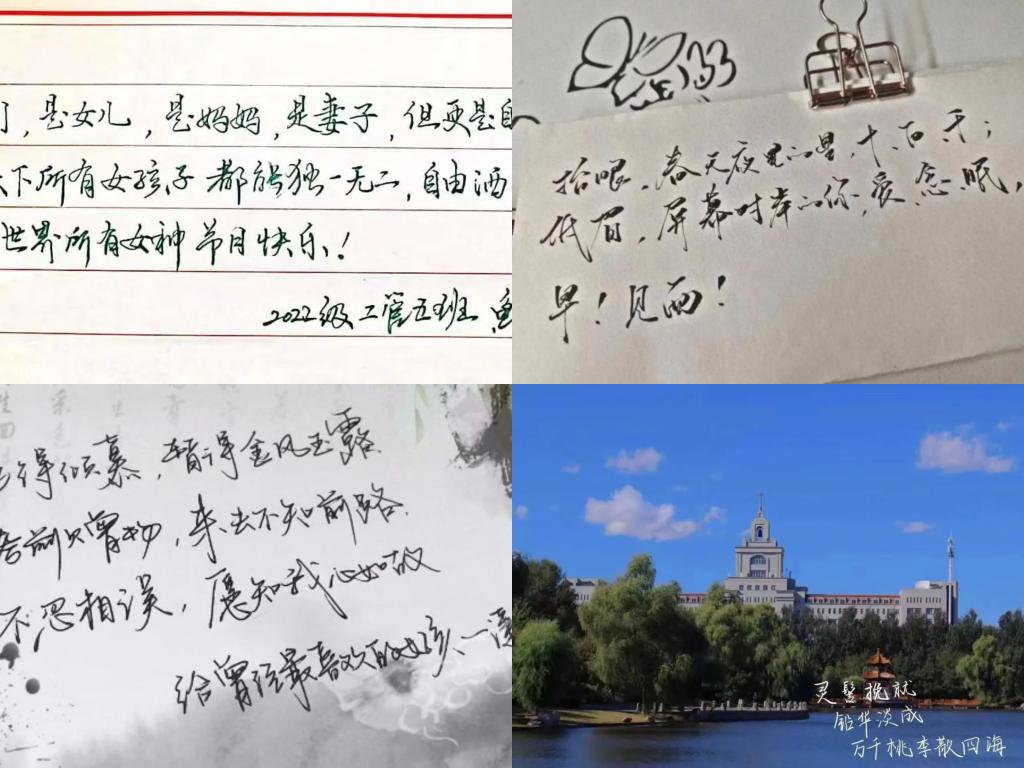 ，是女儿，是妈妈，是妻子，但更是自
下所有女孩子都能独一无二，自由洒
世界所有女神节日快乐！
2022级工管五班
抬眼，春天夜里的星，十、百、千；
低眉，屏幕对岸的你，夜、念、眠，
早！见面！
得倾慕，错得金风玉露
前只曾物，来去不知前路.
不忍相误，愿知我心如故
给曾经最喜欢的女孩、一
灵髻挽就
铅华淡成
万千桃李散四海